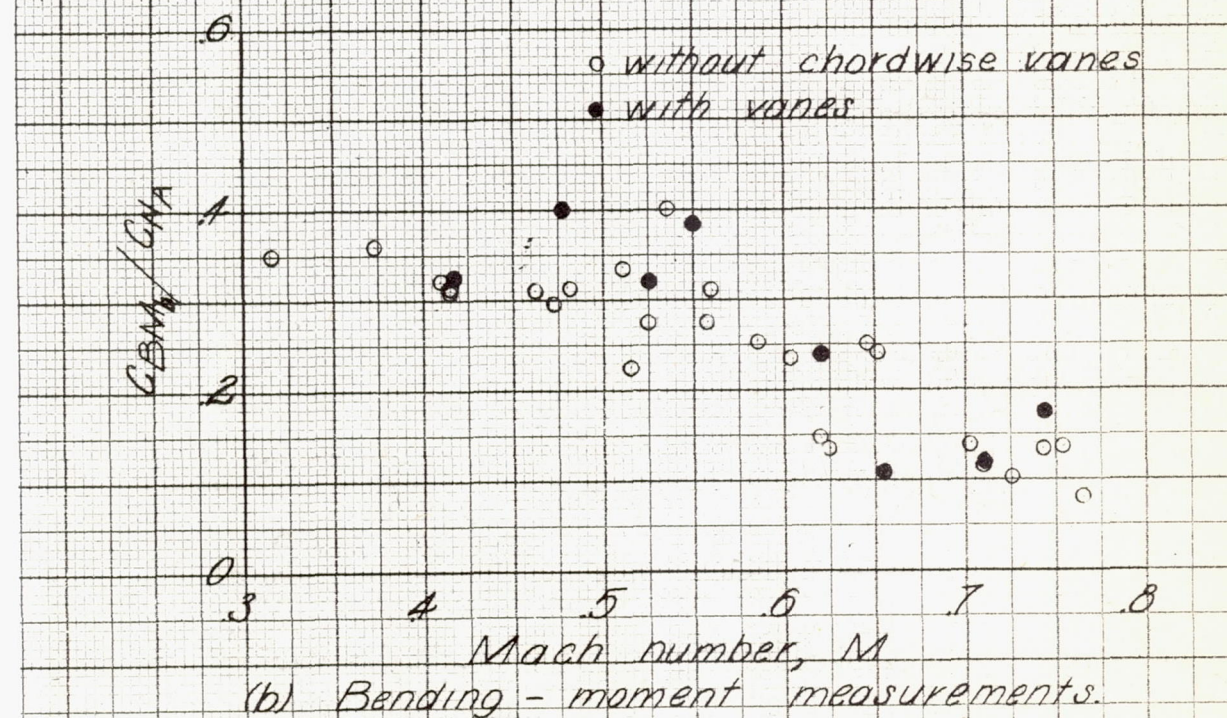 .6
○ without chordwise vanes
● with vanes
.4
C_BM_B / C_NA
.2
0
.3 .4 .5 .6 .7 .8
Mach number, M
(b) Bending - moment measurements.